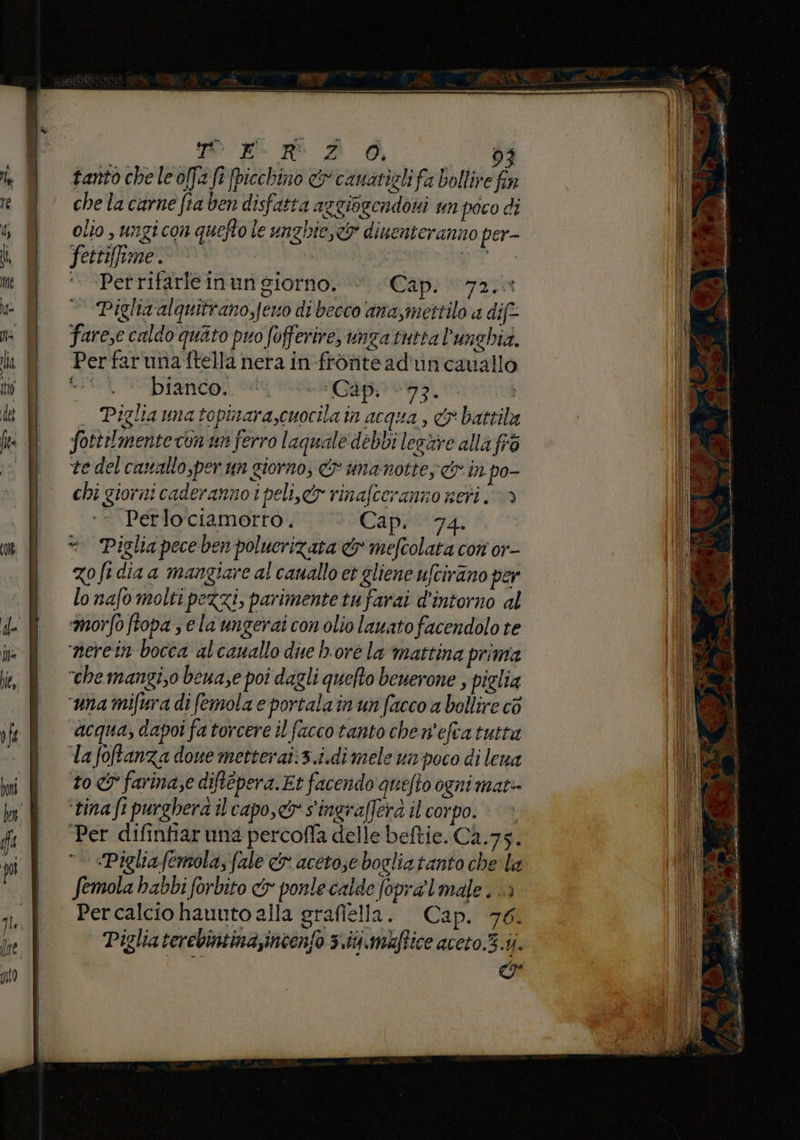 TERZO. 93
tanto che le ossa si spicchino & cauatigli fa bollire fin
che la carne sia ben disfatta aggiōgendoui un poco di
olio, ungi con questo le unghie, & diuenteranno per-
fettissime.
Per rifarle in un giorno. Cap. 72.
Piglia alquitrano, seuo di becco ana, mettilo a dis-
fare, e caldo quāto puo sofferire, unga tutta l'unghia.
Per far una stella nera in fronte ad un cauallo
bianco. Cap. 73.
Piglia una topinara, cuocila in acqua, & battila
sottilmente con un ferro laquale debbi legare alla frō
te del cauallo, per un giorno, & una notte, & in po-
chi giorni caderanno i peli, & rinasceranno neri.
Per lo ciamorro. Cap. 74.
Piglia pece ben poluerizata & mescolata con or-
zo si dia a mangiare al cauallo et gliene uscirāno per
lo naso molti pezzi, parimente tu farai d'intorno al
morso stopa, e la ungerai con olio lauato facendolo te
nere in bocca al cauallo due hore la mattina prima
che mangi, o beua, e poi dagli questo beuerone, piglia
una misura di semola e portala in un sacco a bollire cō
acqua, dapoi fa torcere il sacco tanto che n'esca tutta
la sostanza doue metterai ʒ.i. di mele un poco di leua
to & farina, e distēpera. Et facendo questo ogni mat-
tina si purgherà il capo, & s'ingrasserà il corpo.
Per disinfiar una percossa delle bestie. Ca. 75.
Piglia semola, sale & aceto, e boglia tanto che la
semola habbi sorbito & ponle calde sopra'l male.
Per calcio hauuto alla grassella. Cap. 76.
Piglia terebintina, incenso ʒ.iij. mastice aceto. ʒ.ij.
&